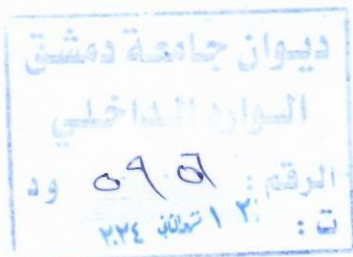 ديوان جامعة دمشق
الوارد الداخلي
الرقم: ٥٩٥٦ ود
ت: ١٢ تشرين٢ ٢٠٢٤